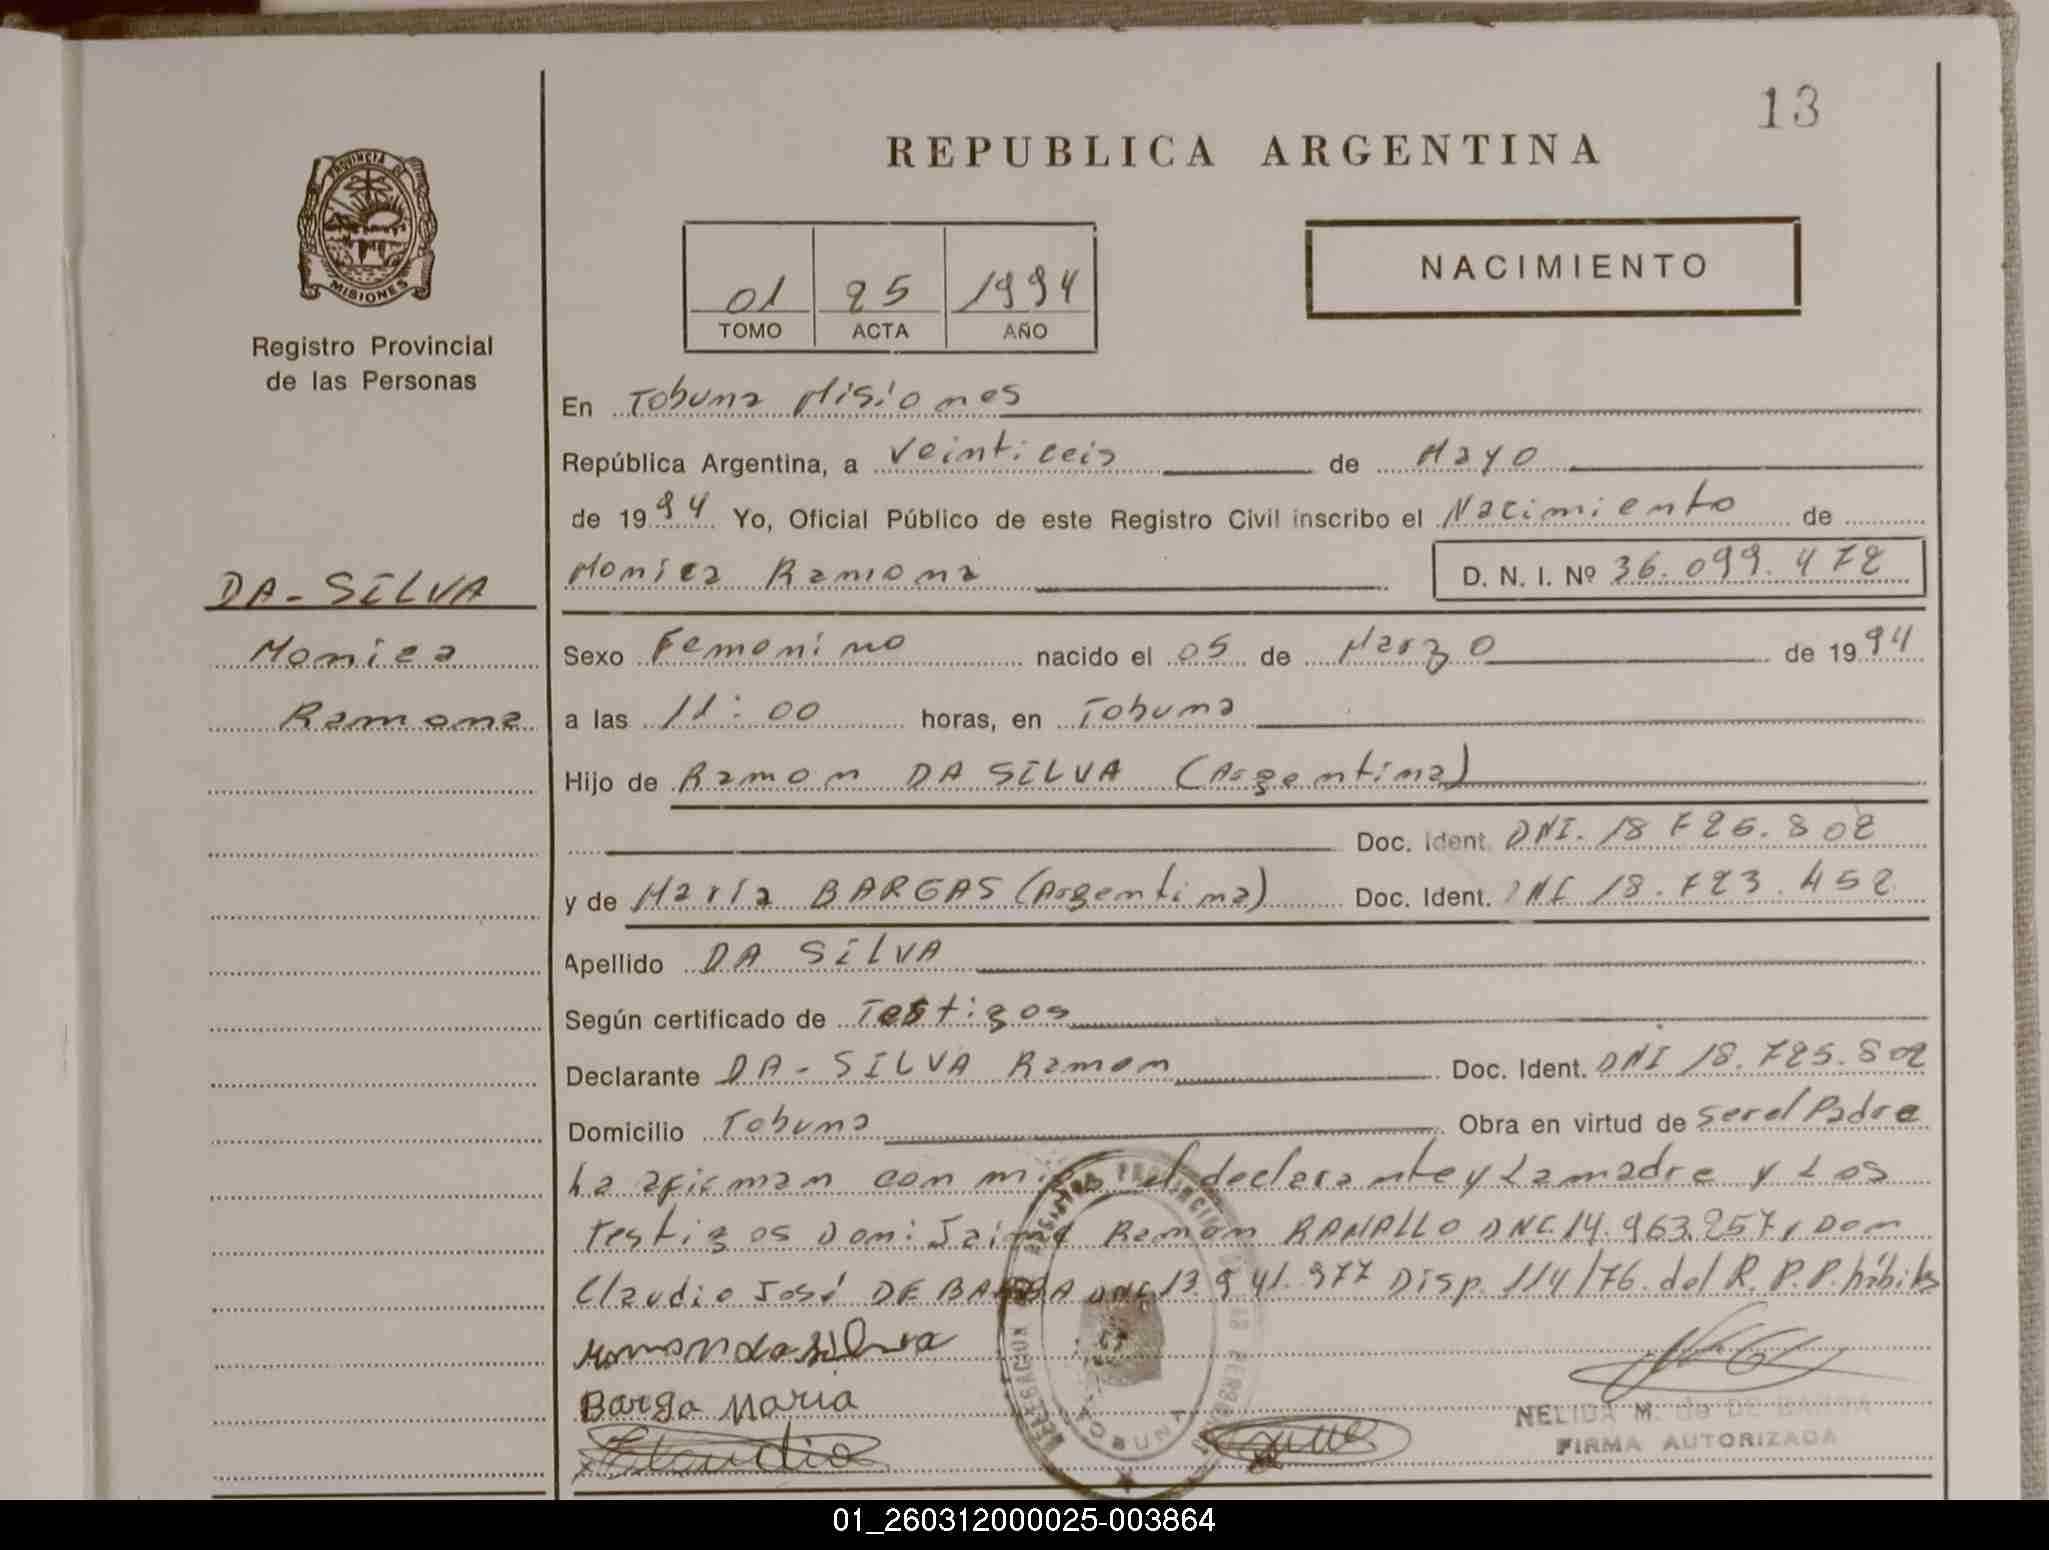 13
REPUBLICA ARGENTINA
PROVINCIA DE
MISIONES
Registro Provincial
de las Personas
01 25 1994
TOMO ACTA AÑO
NACIMIENTO
En Tobuna Misiones
República Argentina, a Veinticeis de Mayo
de 1994 Yo, Oficial Público de este Registro Civil inscribo el Nacimiento de
Monica Ramona D. N. I. Nº 36.099.472
DA-SILVA
Monica
Ramona
Sexo Femenino nacido el 05 de Marzo de 1994
a las 11:00 horas, en Tobuna
Hijo de Ramon DA SILVA (Argentina)
Doc. Ident. DNI. 18 725.802
y de María BARGAS (Argentina) Doc. Ident. DNI 18.723.452
Apellido DA SILVA
Según certificado de Testigos
Declarante DA-SILVA Ramon Doc. Ident. DNI 18.725.802
Domicilio Tobuna Obra en virtud de ser el Padre
La afirman con migo el declarante y La madre y Los
Testigos Don: Jaime Ramón RAMALLO DNI. 14.963.257, Don
Claudio José DE BARBA DNI 13.941.977 Disp. 114/76 del R.P.P.
Ramon da silva
Barga Maria
Claudio
DELEGACION REGISTRO PROVINCIAL DE LAS PERSONAS
TOBUNA
NELIDA M. de DE BARBA
FIRMA AUTORIZADA
01_260312000025-003864